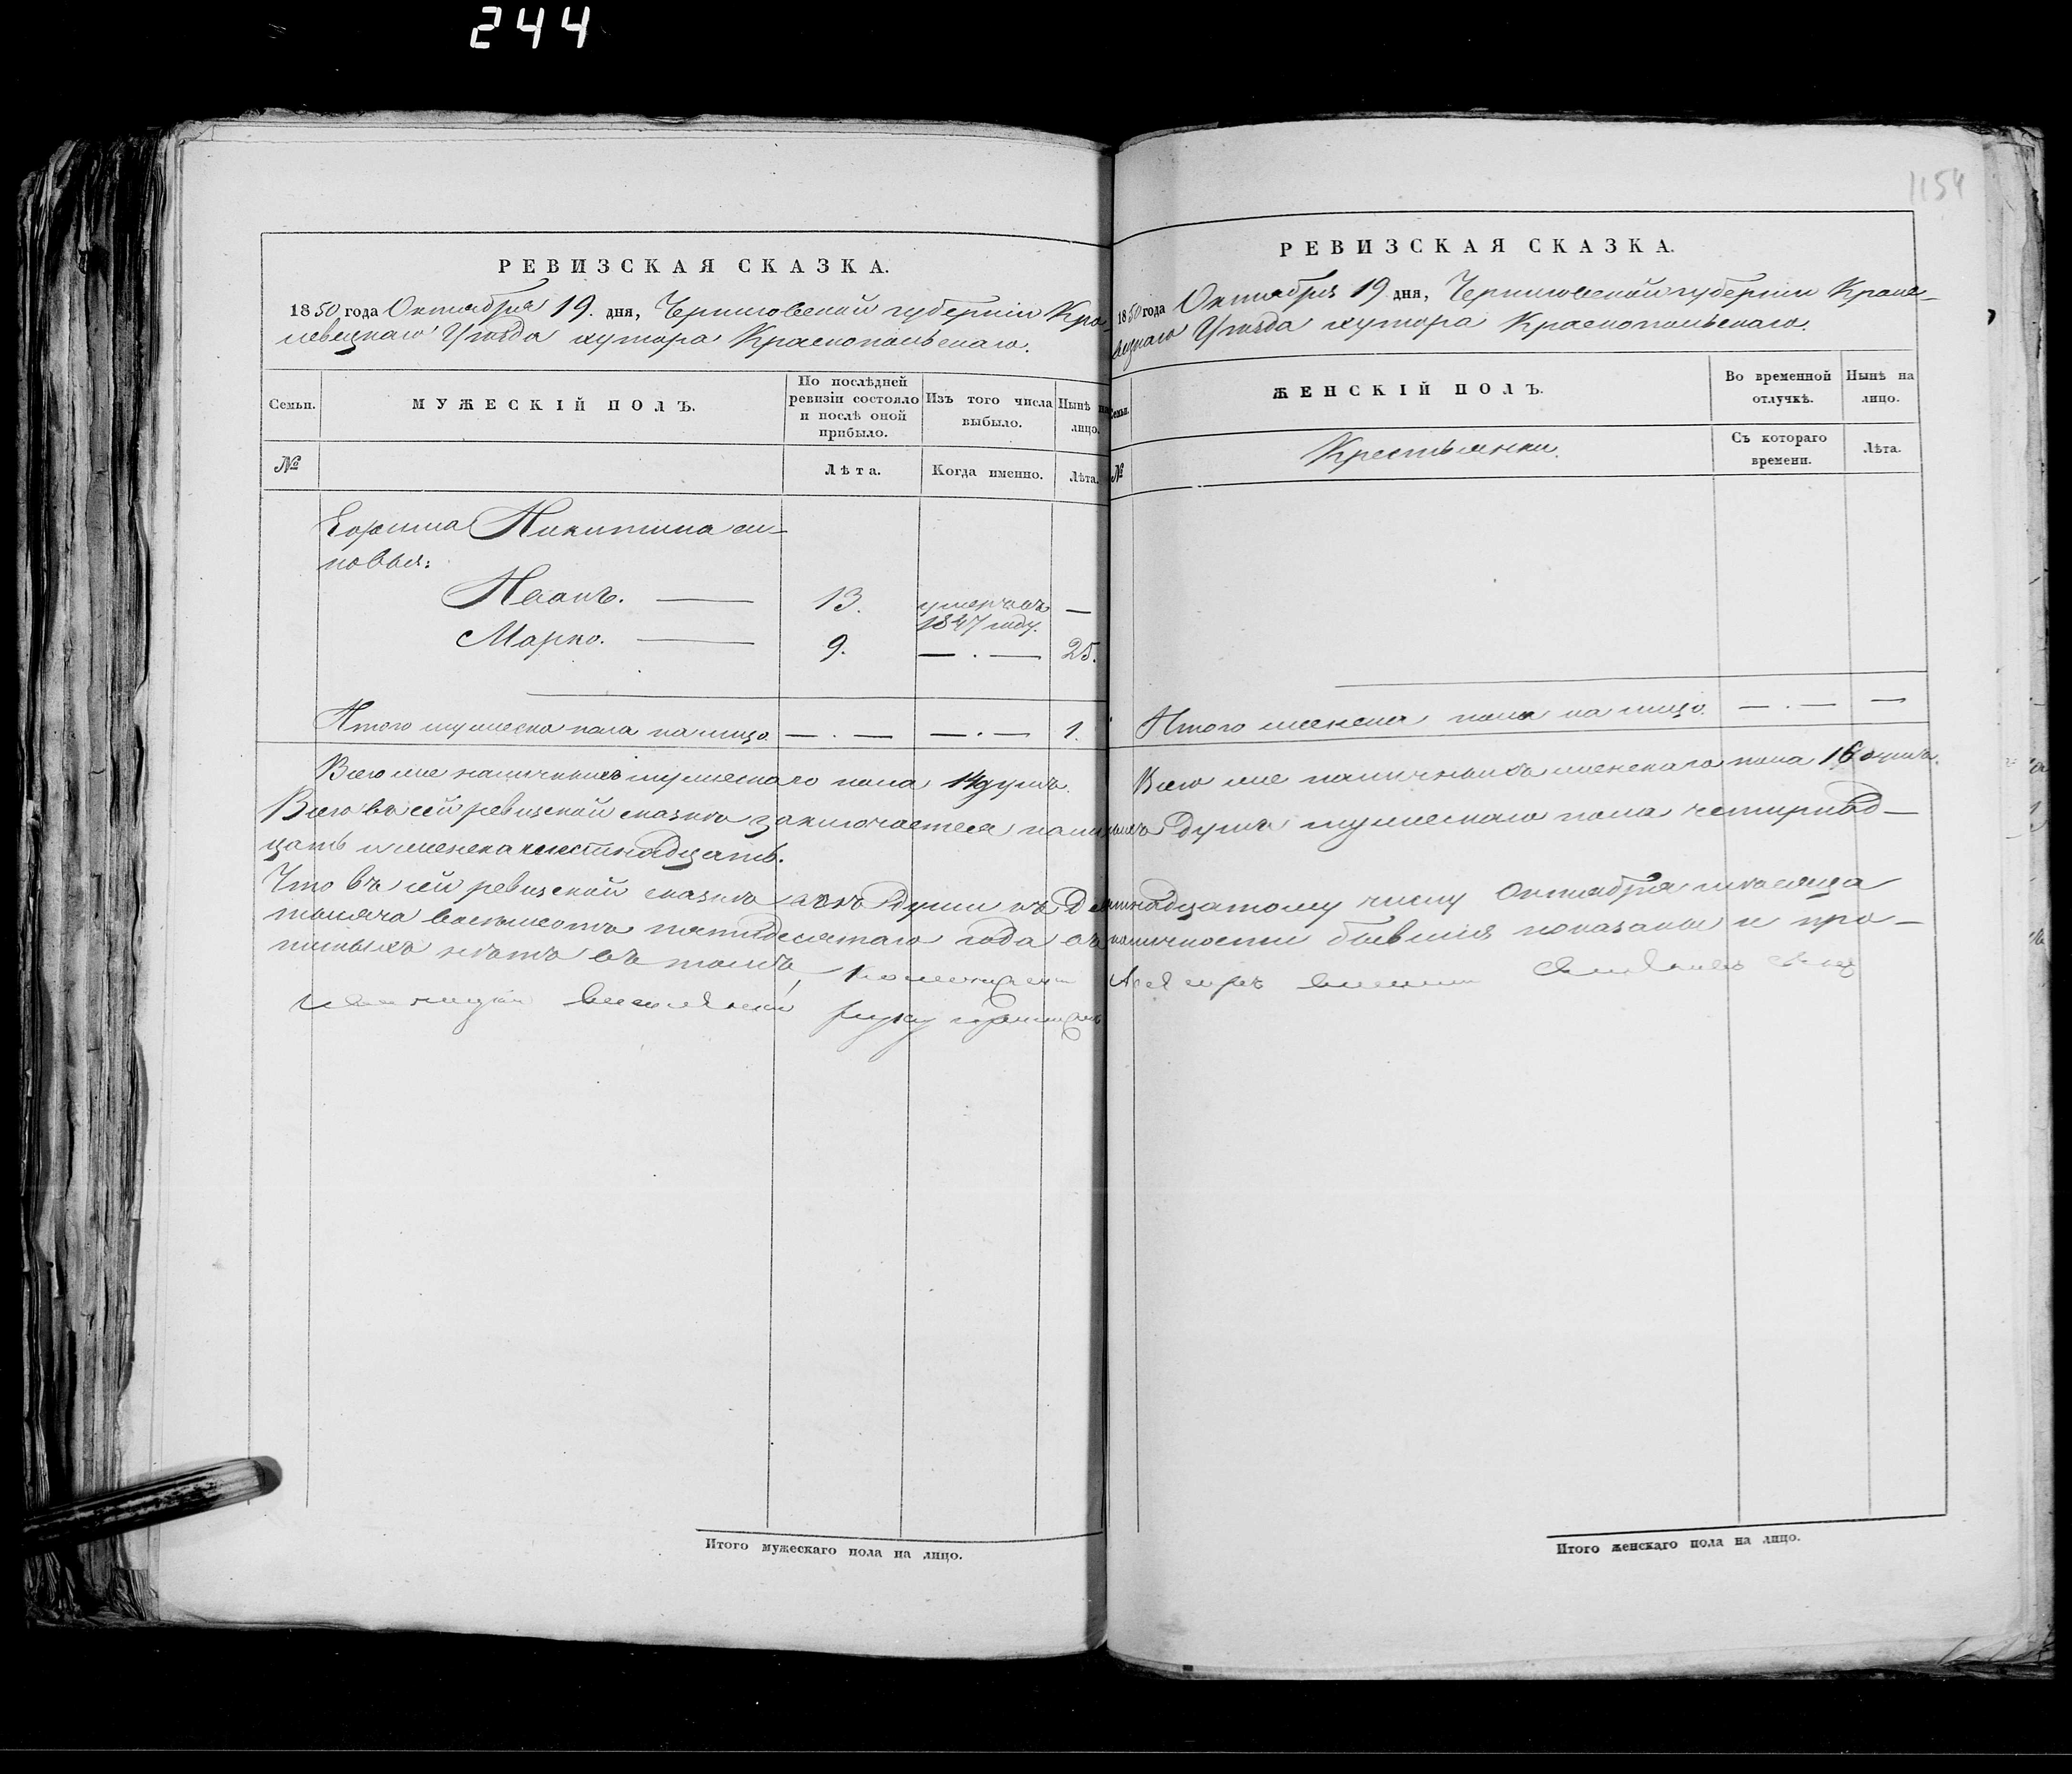 244
1154
РЕВИЗСКАЯ СКАЗКА.
1850 года Октября 19. дня, Черниговской губерніи Кро-
левецкаго Уѣзда хутора Краснопольскаго.
Семьи.
МУЖЕСКІЙ ПОЛЪ.
По послѣдней ревизіи состояло и послѣ оной прибыло.
Изъ того числа выбыло.
Нынѣ на лицо.
№
Лѣта.
Когда именно.
Лѣта.
Никитина си-
новья:
Иванъ. — 13. умерчъ въ —
1847 году.
Марко. — 9. — . — 25.
Итого мужеска пола на лицо. — . — — . — 1.
Всего же наличныхъ мужескаго пола 14 душъ.
РЕВИЗСКАЯ СКАЗКА.
1850 года Октября 19 дня, Черниговской губерніи Кроле-
вецкаго Уѣзда хутора Краснопольскаго.
Семьи.
ЖЕНСКІЙ ПОЛЪ.
Во временной отлучкѣ.
Нынѣ на лицо.
№
Крестьянки.
Съ котораго времени.
Лѣта.
Итого женска пола на лицо. — . — —
Всего же наличныхъ женскаго пола 16 душъ.
Всего въ сей ревизской сказкѣ заключается наличныхъ душъ мужескаго пола четырнад-
цать и женска шестнадцать.
Что въ сей ревизской сказкѣ всѣ души къ Девятнадцатому числу Октября мѣсяца
тысяча восемьсотъ пятидесятаго года въ наличности бывшія показаны и про-
писныхъ нѣтъ въ томъ,
руку
Итого мужескаго пола на лицо.
Итого женскаго пола на лицо.